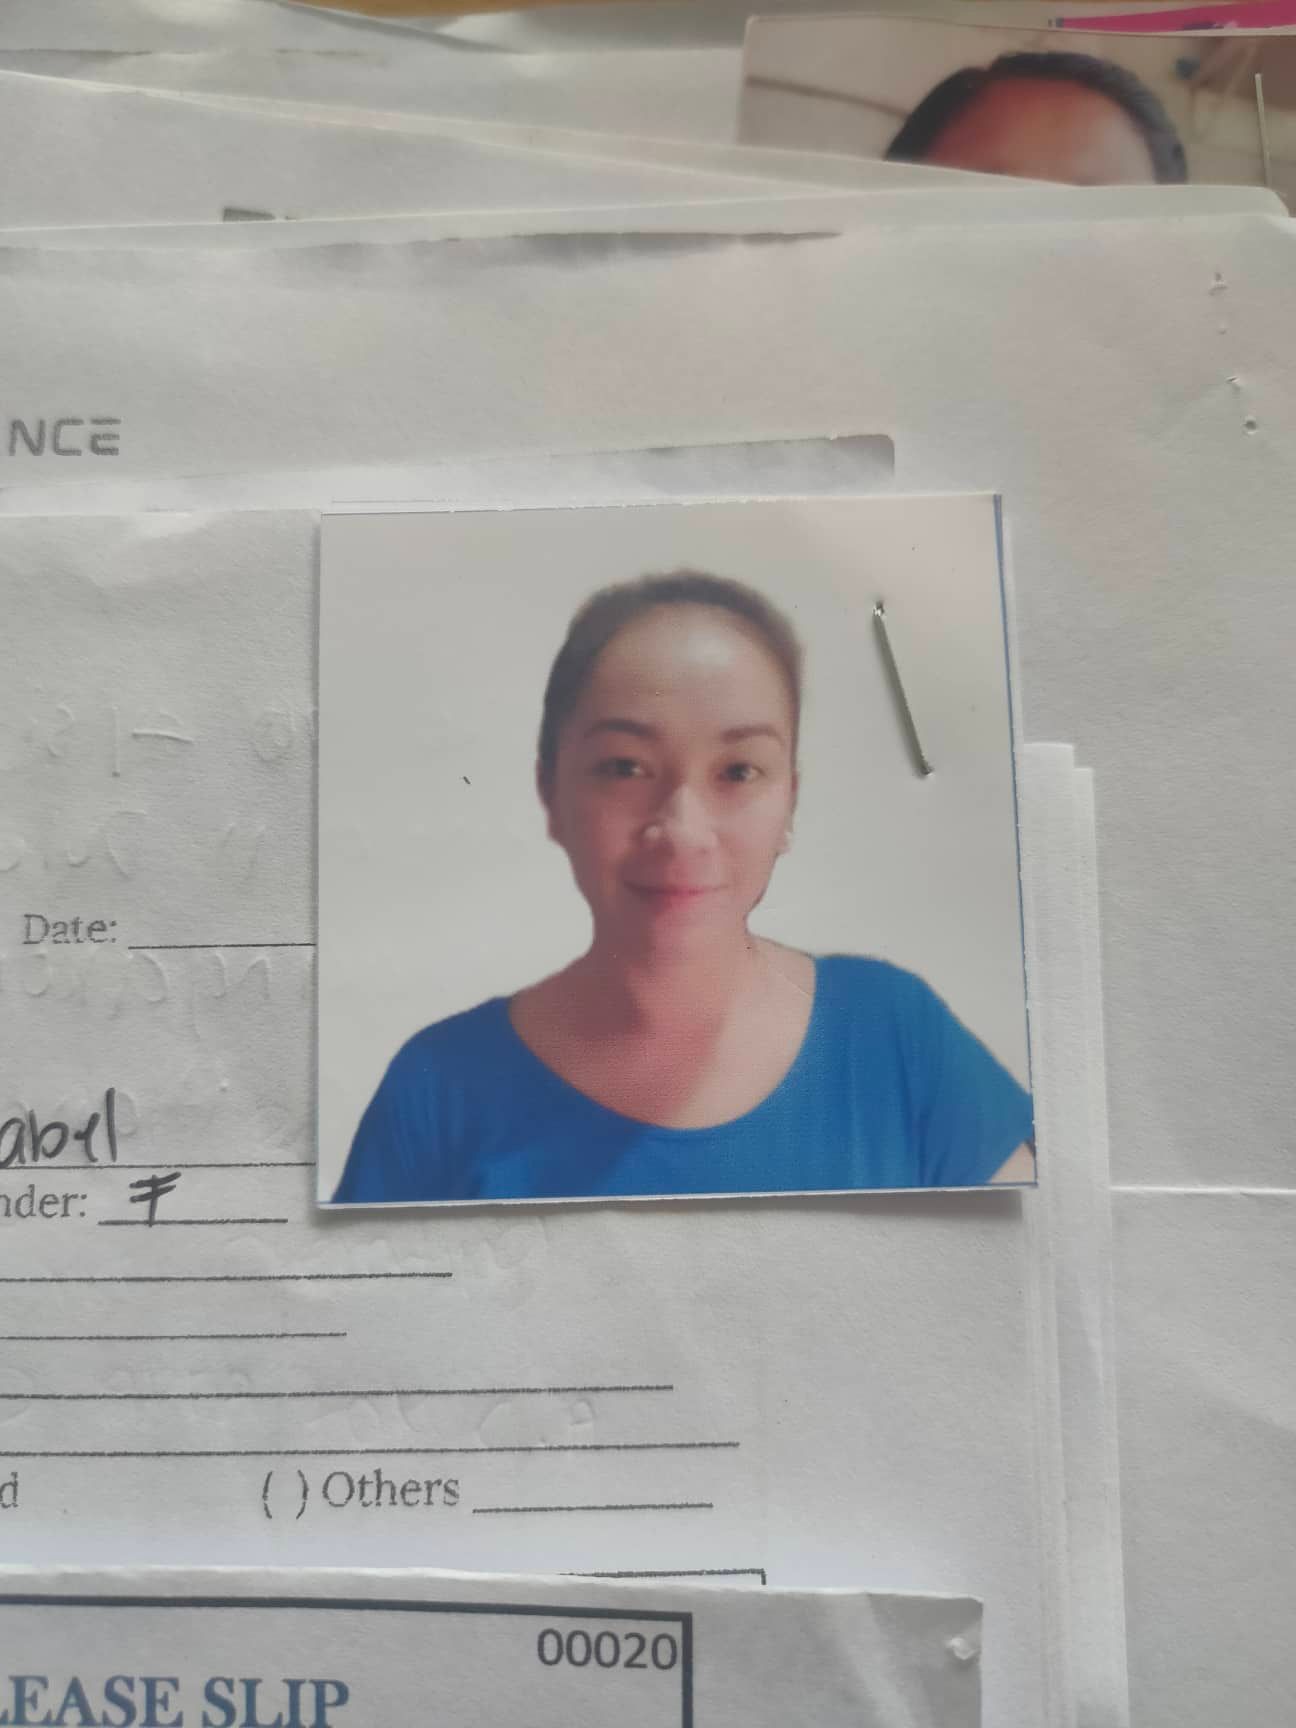 NCE
Date:
abel
nder: F
d ( ) Others
00020
LEASE SLIP